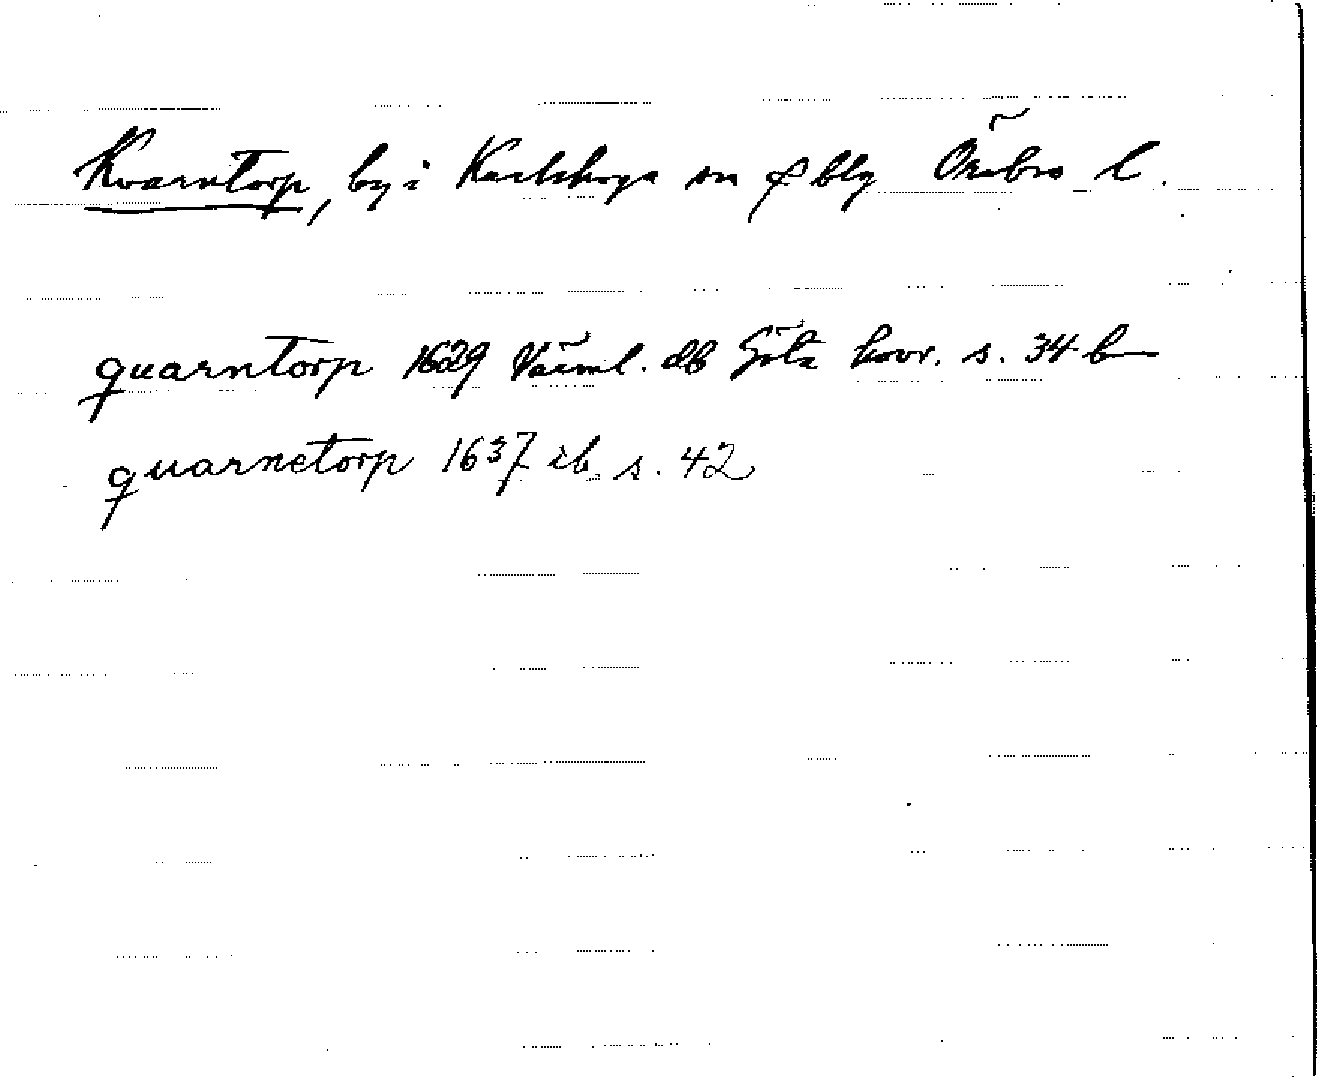 Kvarntorp, by i Karlskoga sn o blg Örebro l.
quarntorp 1629 Värml. db Göta hovr. s. 34 b
quarnetorp 1637 ib. s. 42